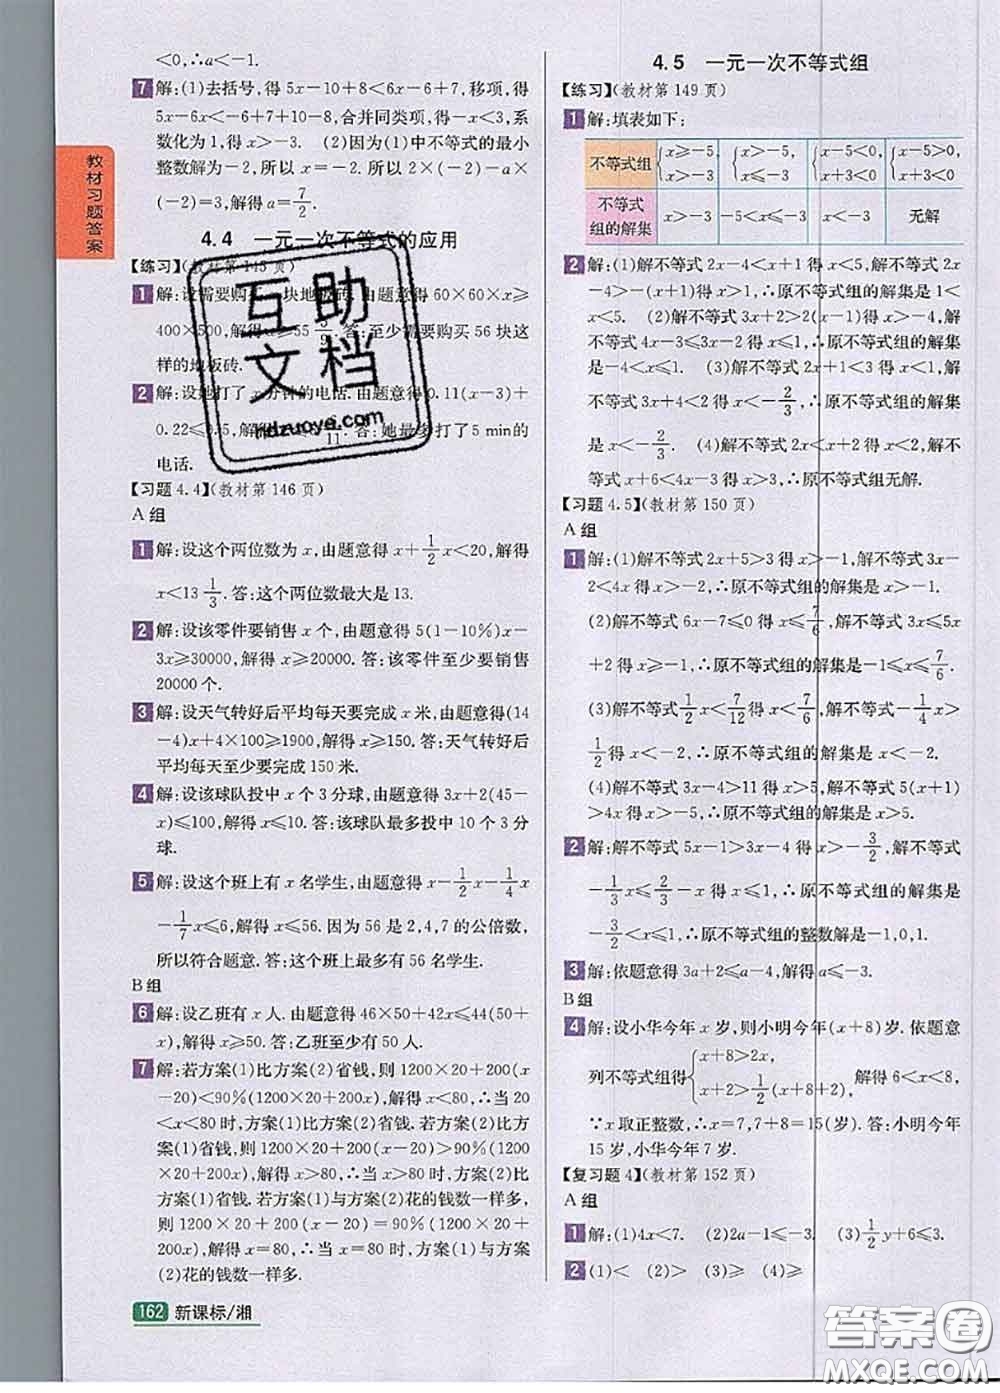 <0,∴a<-1.
7 解:(1)去括号,得 5x-10+8<6x-6+7,移项,得
5x-6x<-6+7+10-8,合并同类项,得-x<3,系
数化为1,得x>-3. (2)因为(1)中不等式的最小
整数解为-2,所以 x=-2. 所以 2×(-2)-a×
(-2)=3,解得 a=7/2.
教材习题答案
4.4 一元一次不等式的应用
【练习】(教材第145页)
1 解:设需要购买x块地板砖. 由题意得 60×60×x≥
400×500,解得 x≥55 5/9. 答:至少需要购买 56 块这
样的地板砖.
2 解:设她打了x分钟的电话. 由题意得 0.11(x-3)+
11. 答:她最多打了 5 min的
电话.
【习题4.4】(教材第146页)
A 组
1 解:设这个两位数为 x,由题意得 x+1/2x<20,解得
x<13 1/3. 答:这个两位数最大是 13.
2 解:设该零件要销售 x 个,由题意得 5(1-10%)x-
3x≥30000,解得 x≥20000. 答:该零件至少要销售
20000 个.
3 解:设天气转好后平均每天要完成 x 米,由题意得(14
-4)x+4×100≥1900,解得 x≥150. 答:天气转好后
平均每天至少要完成 150 米.
4 解:设该球队投中 x 个 3 分球,由题意得 3x+2(45-
x)≤100,解得 x≤10. 答:该球队最多投中 10 个 3 分
球.
5 解:设这个班上有 x 名学生,由题意得 x-1/2x-1/4x
-1/7x≤6,解得 x≤56. 因为 56 是 2,4,7 的公倍数,
所以符合题意. 答:这个班上最多有 56 名学生.
B 组
6 解:设乙班有 x 人. 由题意得 46×50+42x≤44(50+
x),解得 x≥50. 答:乙班至少有 50 人.
7 解:若方案(1)比方案(2)省钱,则 1200×20+200(x
-20)<90%(1200×20+200x),解得 x<80,∴当 20
<x<80 时,方案(1)比方案(2)省钱. 若方案(2)比方
案(1)省钱,则 1200×20+200(x-20)>90%(1200
×20+200x),解得 x>80,∴当 x>80 时,方案(2)比
方案(1)省钱. 若方案(1)与方案(2)花的钱数一样多,
则 1200×20+200(x-20)=90%(1200×20+
200x),解得 x=80,∴当 x=80 时,方案(1)与方案
(2)花的钱数一样多.
162 新课标/湘
4.5 一元一次不等式组
【练习】(教材第149页)
1 解:填表如下:
不等式组 {x≥-5, x>-3 {x>-5, x≤-3 {x-5<0, x+3<0 {x-5>0, x+3<0
不等式组的解集 x>-3 -5<x≤-3 x<-3 无解
2 解:(1)解不等式 2x-4<x+1 得 x<5,解不等式 2x
-4>-(x+1)得 x>1,∴原不等式组的解集是 1<
x<5. (2)解不等式 3x+2>2(x-1)得 x>-4,解不
等式 4x-3≤3x-2 得 x≤1,∴原不等式组的解集是
-4<x≤1. (3)解不等式 2x+1<3 得 x<1,解不等
式 3x+4<2 得 x<-2/3,∴原不等式组的解集
是 x<-2/3. (4)解不等式 2x<x+2 得 x<2,解不
等式 x+6≤4x-3 得 x≥3,∴原不等式组无解.
【习题4.5】(教材第150页)
A 组
1 解:(1)解不等式 2x+5>3 得 x>-1,解不等式 3x-
2<4x 得 x>-2,∴原不等式组的解集是 x>-1.
(2)解不等式 6x-7≤0 得 x≤7/6,解不等式 3x≤5x
+2得 x≥-1,∴原不等式组的解集是-1≤x≤7/6.
(3)解不等式1/2x<7/12得 x<7/6,解不等式-1/4x>
1/2得 x<-2,∴原不等式组的解集是 x<-2.
(4)解不等式 3x-4>11 得 x>5,解不等式 5(x+1)
>4x 得 x>-5,∴原不等式组的解集是 x>5.
2 解:解不等式 5x-1>3x-4 得 x>-3/2,解不等式
-1/3x≤2/3-x 得 x≤1,∴原不等式组的解集是
-3/2<x≤1,∴原不等式组的整数解为-1,0,1.
3 解:依题意得 3a+2≤a-4,解得 a≤-3.
B 组
4 解:设小华今年 x 岁,则小明今年(x+8)岁. 依题意
列不等式组得{x+8>2x, x+2>1/2(x+8+2), 解得 6<x<8,
∵x 取正整数,∴x=7,7+8=15. 答:小明今年
15 岁,小华今年 7 岁.
【复习题4】(教材第152页)
A 组
1 解:(1)4x<7. (2)2a-1≤-3. (3)1/2y+6≤3.
2 (1)< (2)> (3)≥ (4)≥
互助
文档
hdzuoye.com
答案圈
MXQE.COM